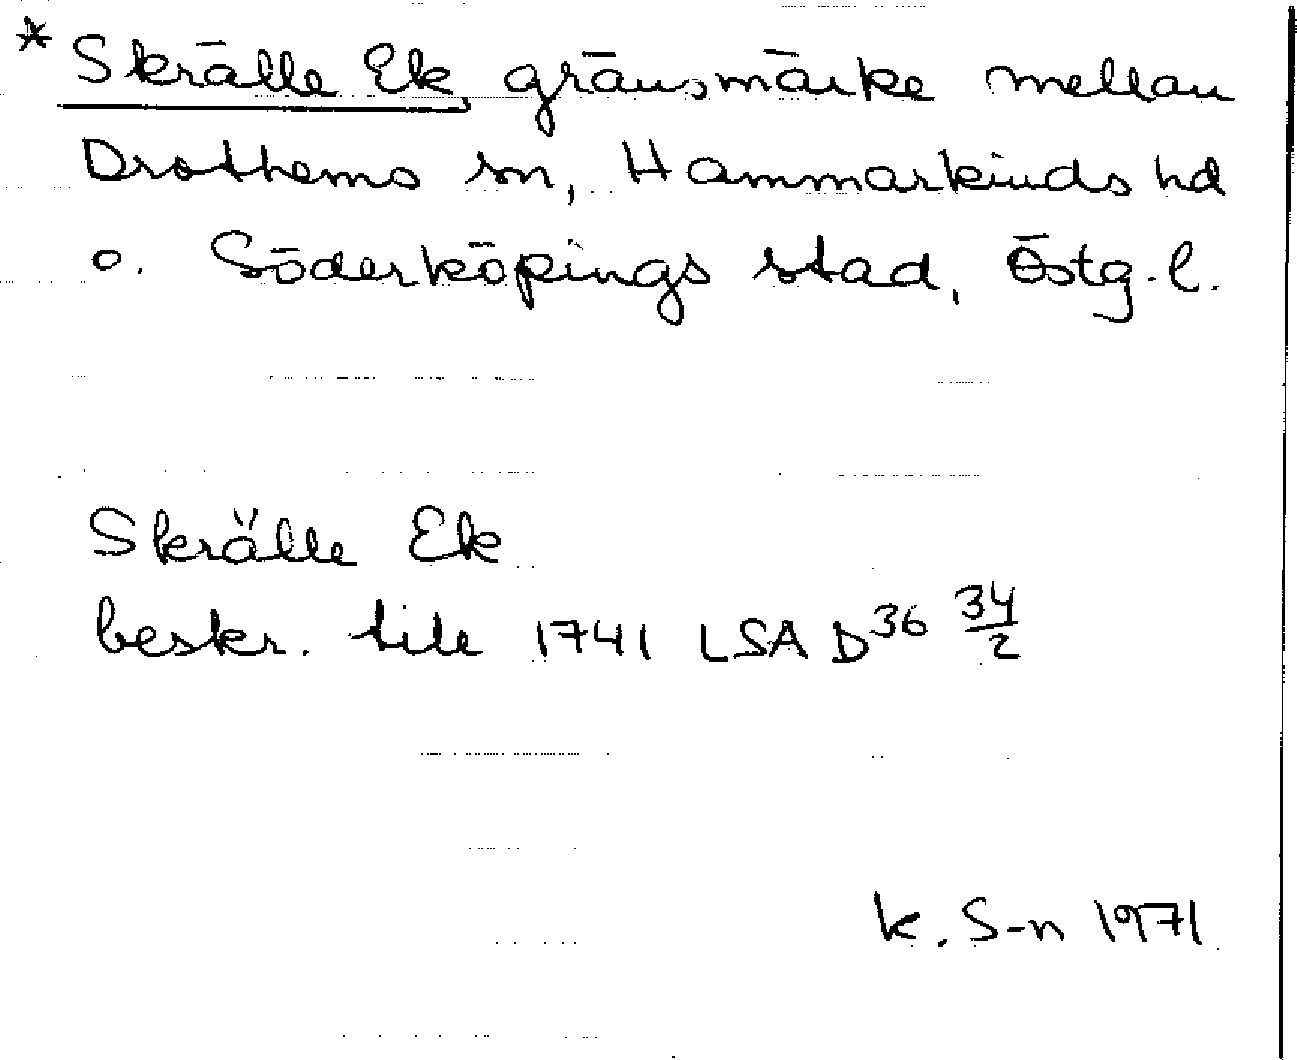 * Skrälle Ek, gränsmärke mellan
Drothems sn, Hammarkinds hd
o. Söderköpings stad, Östg.l.
Skrälle Ek
beskr. till 1741 LSA D36 34/2
K. S-n 1971